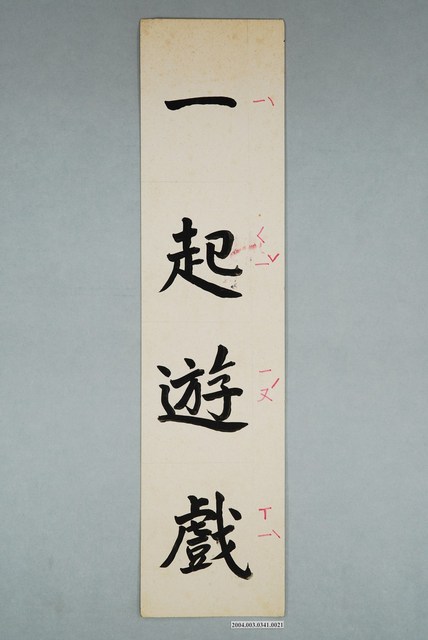 一 ㄧˋ
起 ㄑㄧˇ
遊 ㄧㄡˊ
戲 ㄒㄧˋ
2004.003.0341.0021